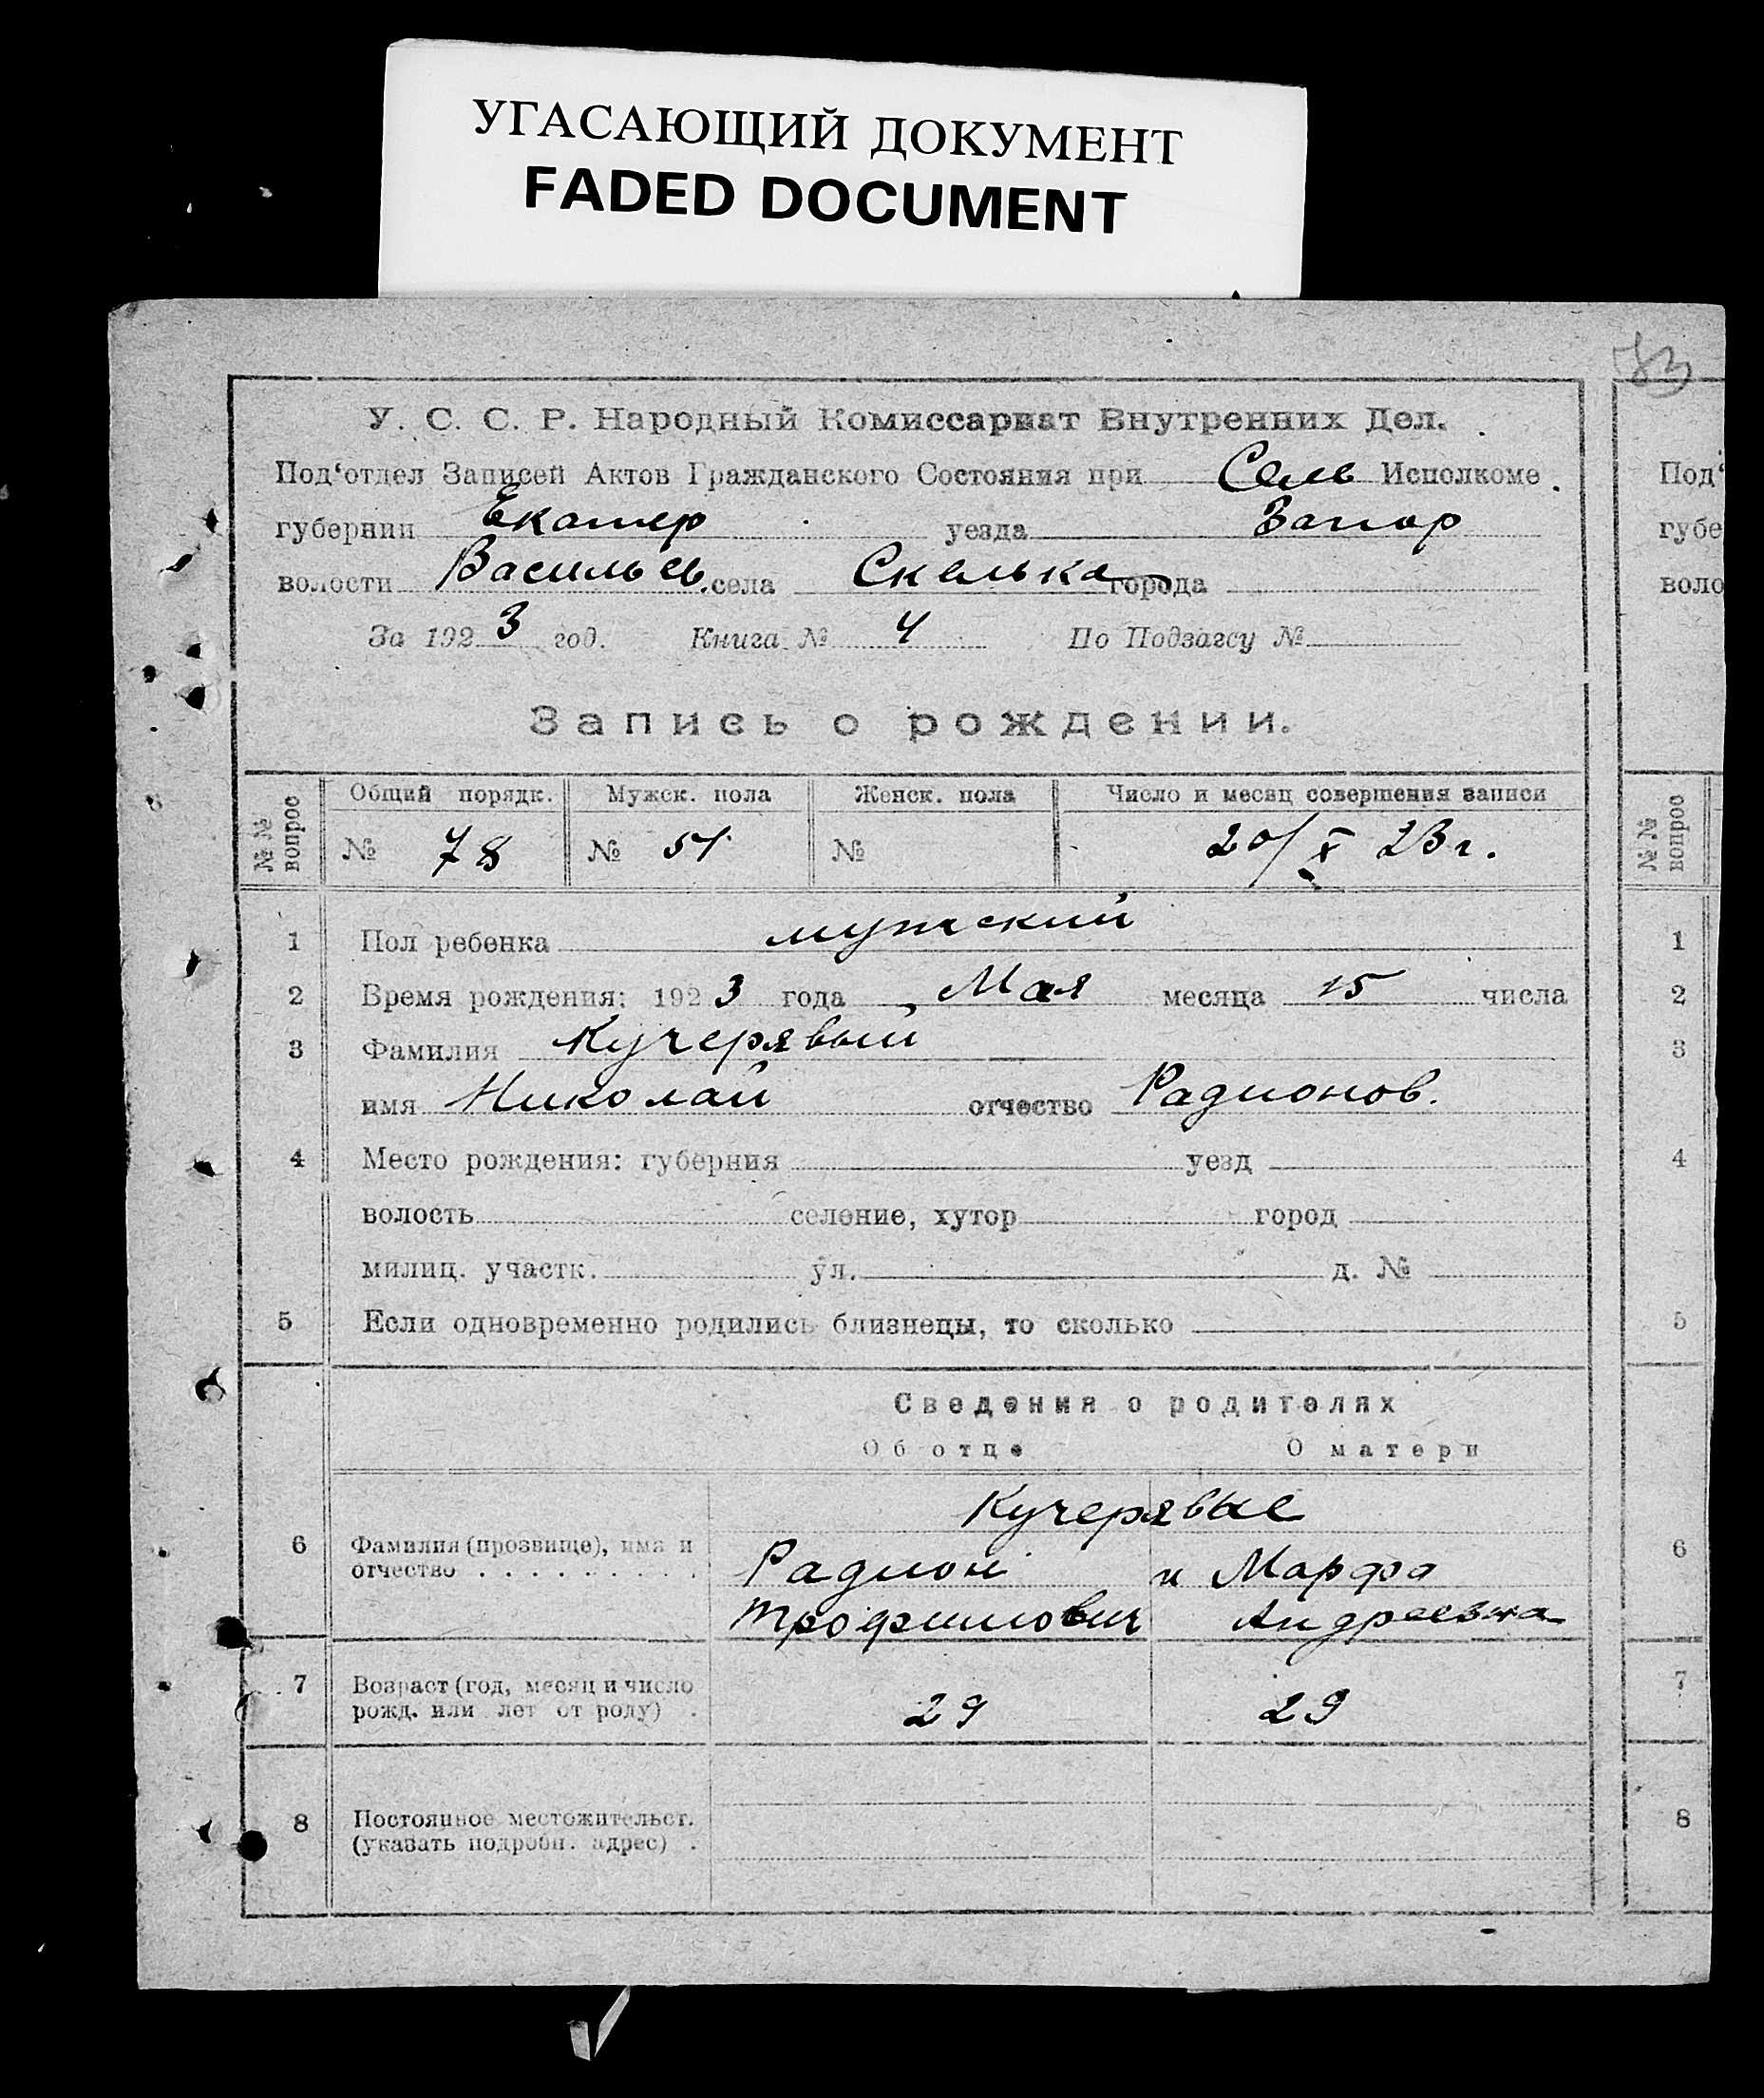 УГАСАЮЩИЙ ДОКУМЕНТ
FADED DOCUMENT
83
У. С. С. Р. Народный Комиссариат Внутренних Дел.
Под‘отдел Записей Актов Гражданского Состояния при Сель Исполкоме.
губернии Екатер уезда Запор
волости Васильев. села Скелька города
За 1923 год. Книга № 4 По Подзагсу №
Запись о рождении.
№№ вопрос
Общий порядк. Мужск. пола Женск. пола Число и месяц совершения записи
№ 78 № 51 № 20/X 23 г.
1 Пол ребенка мужский
2 Время рождения: 1923 года Мая месяца 15 числа
3 Фамилия Кучерявый
имя Николай отчество Радионов.
4 Место рождения: губерния уезд
волость селение, хутор город
милиц. участк. ул. д. №
5 Если одновременно родились близнецы, то сколько
Сведения о родителях
Об отце О матери
Кучерявые
6 Фамилия (прозвище), имя и Радион и Марфа
отчество Трофимович Андреевна
7 Возраст (год, месяц и число
рожд. или лет от роду) 29 29
8 Постоянное местожительст.
(указать подробн. адрес)
Под‘
губе
воло
№№ вопрос
1
2
3
4
5
6
7
8